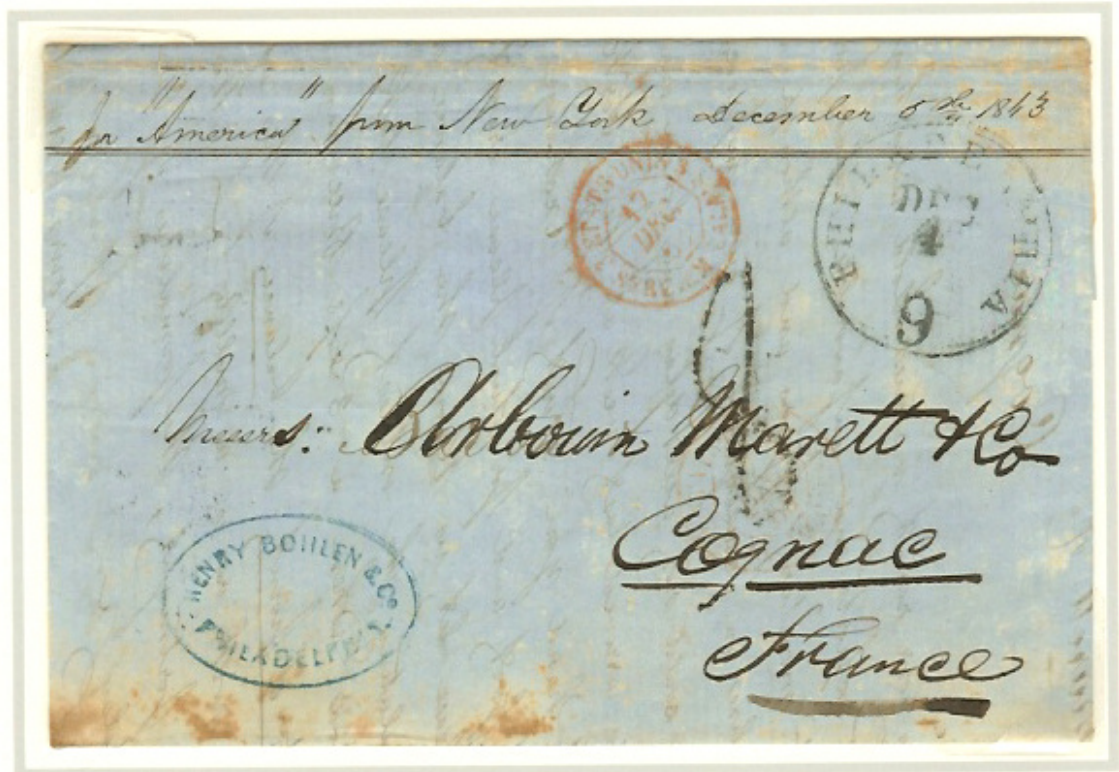 pr "America" from New York December 5th 1843
PHILADELPHIA
DEC
4
9
17
DEC.
Messrs: Arbouin Marett & Co
Cognac
France
HENRY BOHLEN & Co
PHILADELPHIA